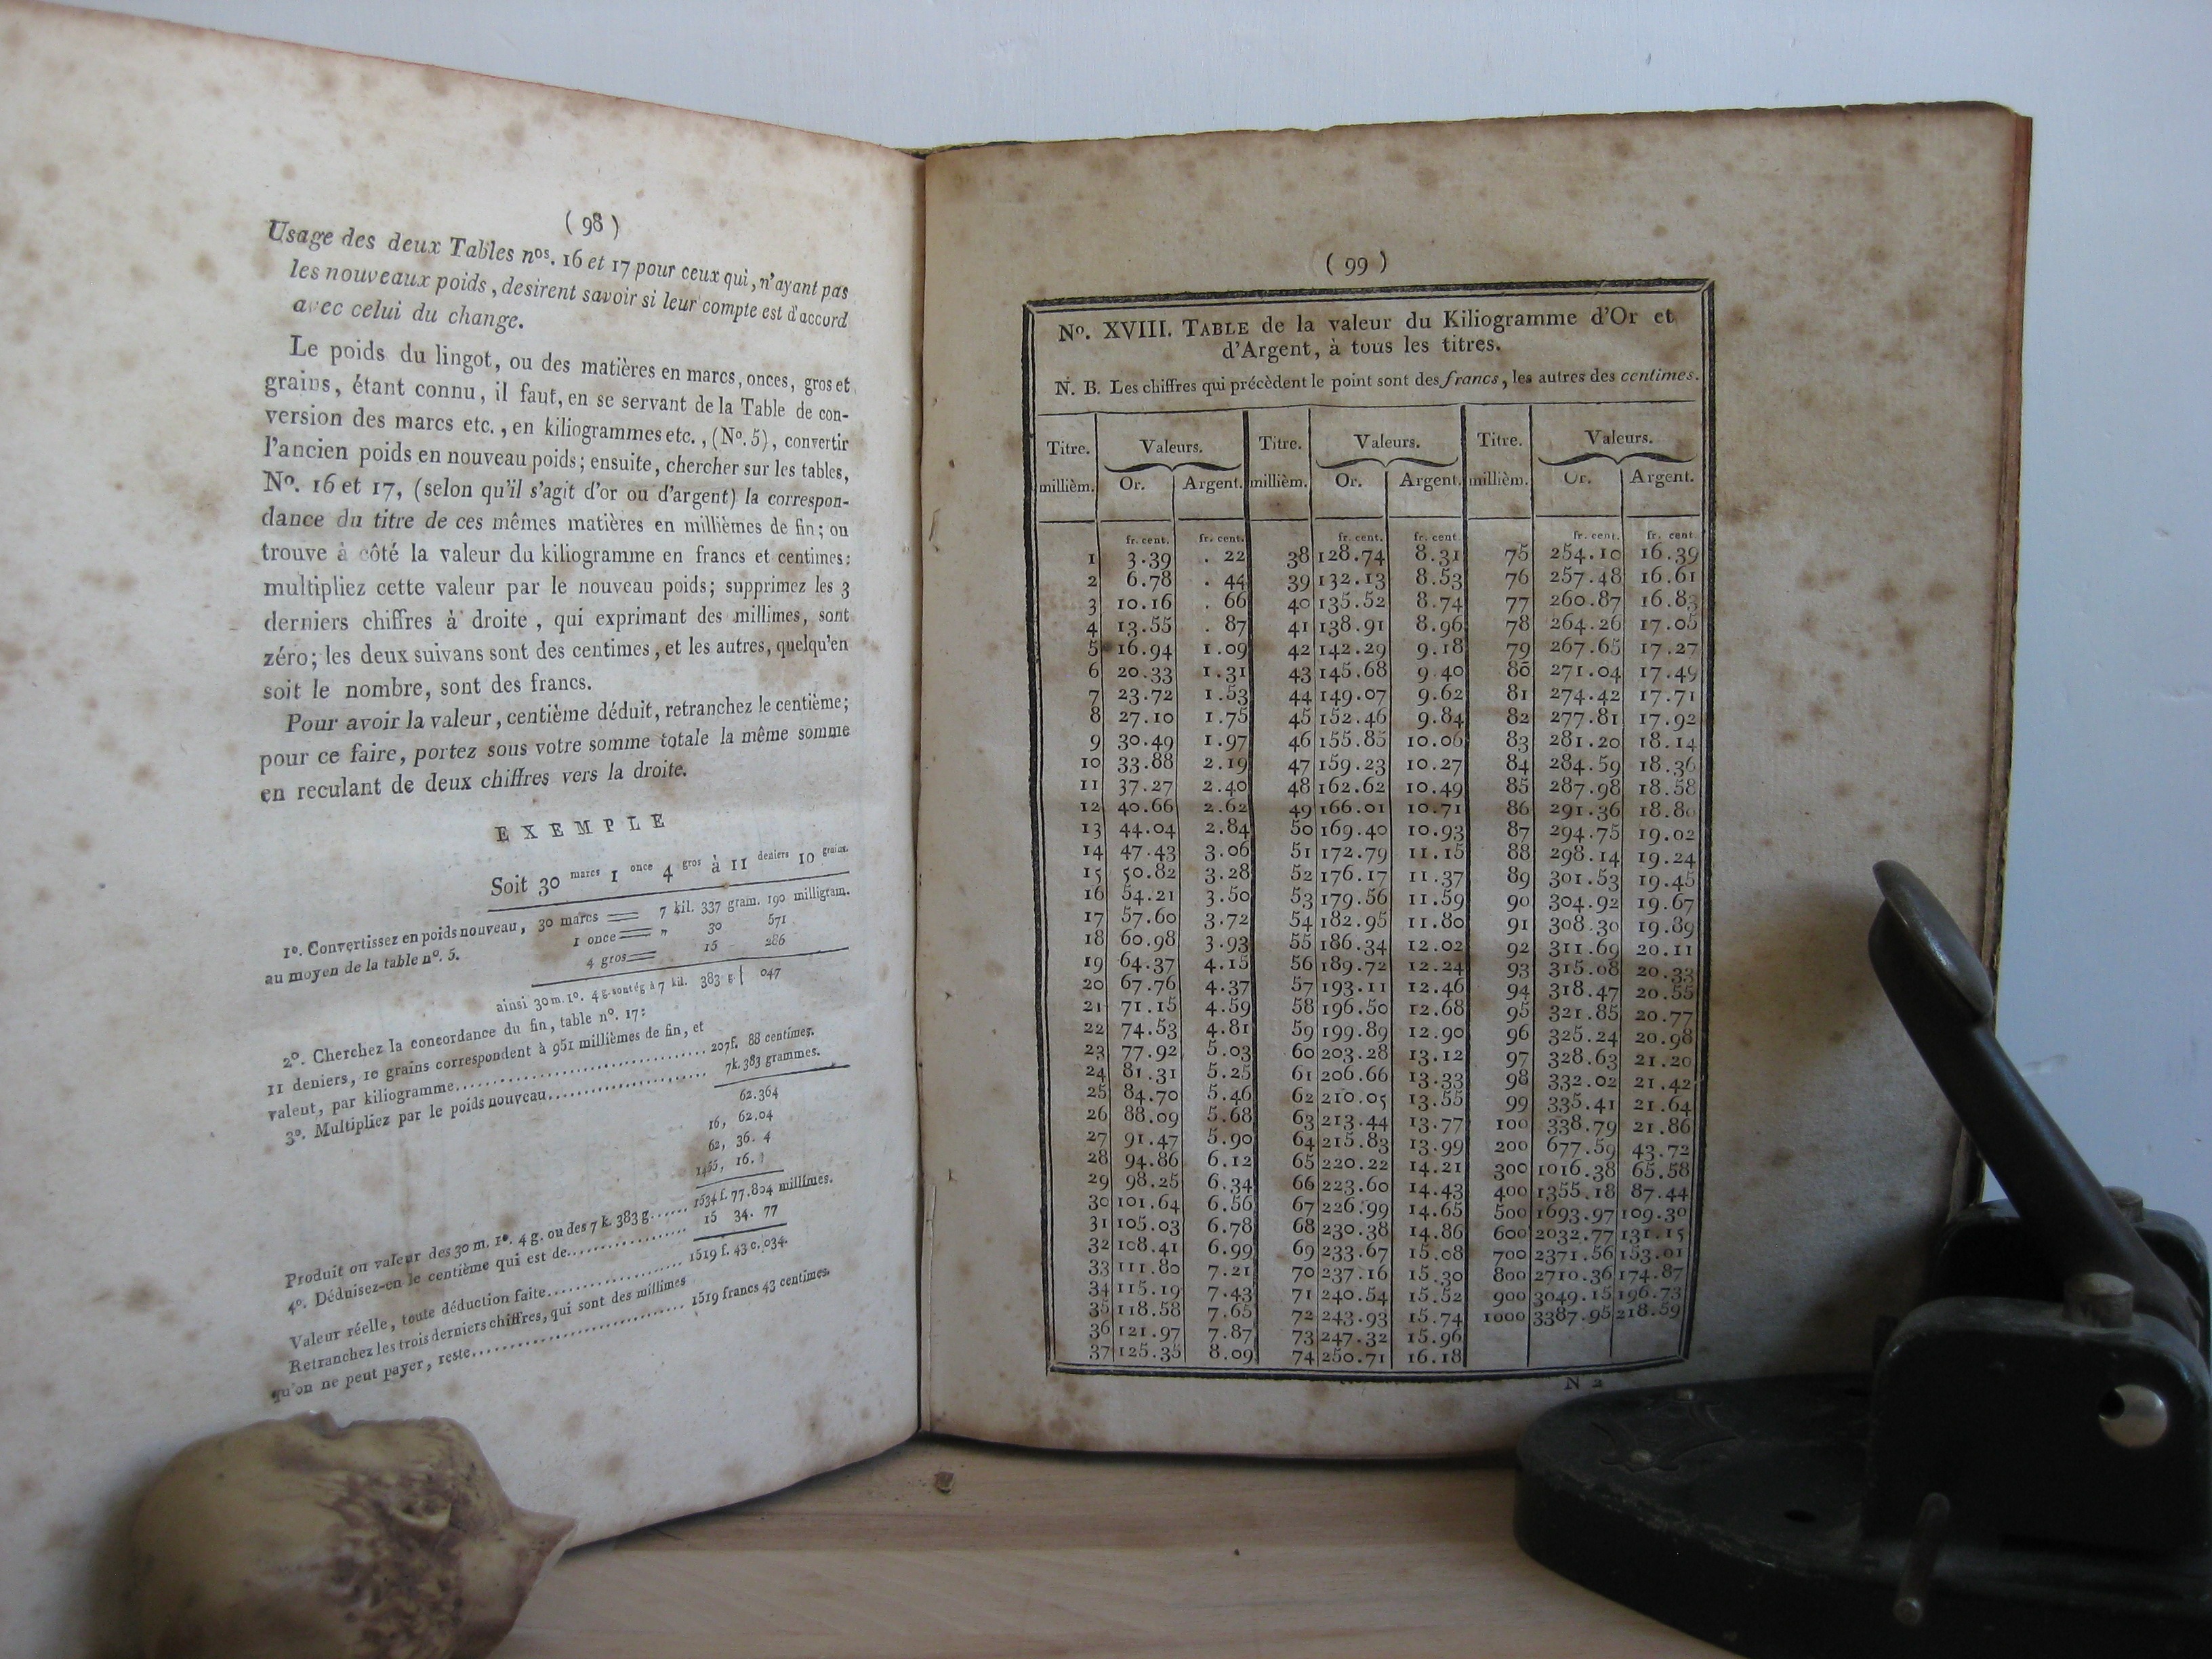 ( 98 )
Usage des deux Tables nos. 16 et 17 pour ceux qui, n'ayant pas
les nouveaux poids, desirent savoir si leur compte est d'accord
avec celui du change.
Le poids du lingot, ou des matières en marcs, onces, gros et
grains, étant connu, il faut, en se servant de la Table de con-
version des marcs etc., en kiliogrammes etc., (No. 5), convertir
l'ancien poids en nouveau poids; ensuite, chercher sur les tables,
No. 16 et 17, (selon qu'il s'agit d'or ou d'argent) la correspon-
dance du titre de ces mêmes matières en millièmes de fin; on
trouve à côté la valeur du kiliogramme en francs et centimes:
multipliez cette valeur par le nouveau poids; supprimez les 3
derniers chiffres à droite, qui exprimant des millimes, sont
zéro; les deux suivans sont des centimes, et les autres, quelqu'en
soit le nombre, sont des francs.
Pour avoir la valeur, centième déduit, retranchez le centième;
pour ce faire, portez sous votre somme totale la même somme
en reculant de deux chiffres vers la droite.
EXEMPLE
Soit 30 marcs 1 once 4 gros à 11 deniers 10 grains.
1o. Convertissez en poids nouveau, 30 marcs = 7 kil. 337 gram. 190 milligram.
au moyen de la table no. 5. 1 once = " 30 571
4 gros = 15 286
ainsi 30 m. 1o. 4 g. sont ég à 7 kil. 383 g. 047
2o. Cherchez la concordance du fin, table no. 17:
11 deniers, 10 grains correspondent à 951 millièmes de fin, et
valent, par kiliogramme.......... 207f. 88 centimes.
3o. Multipliez par le poids nouveau.......... 7k. 383 grammes.
62.364
16, 62.04
62, 36. 4
1455, 16.
Produit ou valeur des 30 m. 1o. 4 g. ou des 7 k. 383 g...... 1534 f. 77.804 millimes.
4o. Déduisez-en le centième qui est de.......... 15 34. 77
Valeur réelle, toute déduction faite.......... 1519 f. 43 c. 034.
Retranchez les trois derniers chiffres, qui sont des millimes
qu'on ne peut payer, reste.......... 1519 francs 43 centimes.
( 99 )
No. XVIII. TABLE de la valeur du Kiliogramme d'Or et
d'Argent, à tous les titres.
N. B. Les chiffres qui précèdent le point sont des francs, les autres des centimes.
Titre. Valeurs. Titre. Valeurs. Titre. Valeurs.
millièm. Or. Argent. millièm. Or. Argent. millièm. Or. Argent.
fr. cent. fr. cent. fr. cent. fr. cent. fr. cent. fr. cent.
1 3.39 . 22 38 128.74 8.31 75 254.10 16.39
2 6.78 . 44 39 132.13 8.53 76 257.48 16.61
3 10.16 . 66 40 135.52 8.74 77 260.87 16.83
4 13.55 . 87 41 138.91 8.96 78 264.26 17.05
5 16.94 1.09 42 142.29 9.18 79 267.65 17.27
6 20.33 1.31 43 145.68 9.40 80 271.04 17.49
7 23.72 1.53 44 149.07 9.62 81 274.42 17.71
8 27.10 1.75 45 152.46 9.84 82 277.81 17.92
9 30.49 1.97 46 155.85 10.06 83 281.20 18.14
10 33.88 2.19 47 159.23 10.27 84 284.59 18.36
11 37.27 2.40 48 162.62 10.49 85 287.98 18.58
12 40.66 2.62 49 166.01 10.71 86 291.36 18.80
13 44.04 2.84 50 169.40 10.93 87 294.75 19.02
14 47.43 3.06 51 172.79 11.15 88 298.14 19.24
15 50.82 3.28 52 176.17 11.37 89 301.53 19.45
16 54.21 3.50 53 179.56 11.59 90 304.92 19.67
17 57.60 3.72 54 182.95 11.80 91 308.30 19.89
18 60.98 3.93 55 186.34 12.02 92 311.69 20.11
19 64.37 4.15 56 189.72 12.24 93 315.08 20.33
20 67.76 4.37 57 193.11 12.46 94 318.47 20.55
21 71.15 4.59 58 196.50 12.68 95 321.85 20.77
22 74.53 4.81 59 199.89 12.90 96 325.24 20.98
23 77.92 5.03 60 203.28 13.12 97 328.63 21.20
24 81.31 5.25 61 206.66 13.33 98 332.02 21.42
25 84.70 5.46 62 210.05 13.55 99 335.41 21.64
26 88.09 5.68 63 213.44 13.77 100 338.79 21.86
27 91.47 5.90 64 215.83 13.99 200 677.59 43.72
28 94.86 6.12 65 220.22 14.21 300 1016.38 65.58
29 98.25 6.34 66 223.60 14.43 400 1355.18 87.44
30 101.64 6.56 67 226.99 14.65 500 1693.97 109.30
31 105.03 6.78 68 230.38 14.86 600 2032.77 131.15
32 108.41 6.99 69 233.67 15.08 700 2371.56 153.01
33 111.80 7.21 70 237.16 15.30 800 2710.36 174.87
34 115.19 7.43 71 240.54 15.52 900 3049.15 196.73
35 118.58 7.65 72 243.93 15.74 1000 3387.95 218.59
36 121.97 7.87 73 247.32 15.96
37 125.35 8.09 74 250.71 16.18
N 2